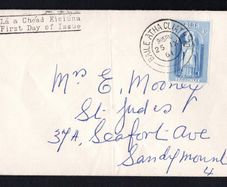 Lá a Chéad Eisiúna
First Day of Issue
BAILE ÁTHA CLIATH
25 IV
ÉIRE
Mrs E. Mooney
St. Judes
37A, Seafort Ave
Sandymount
4